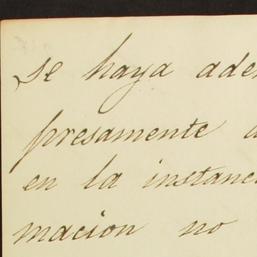 se haya ade
presamente a
en la instanc
macion no